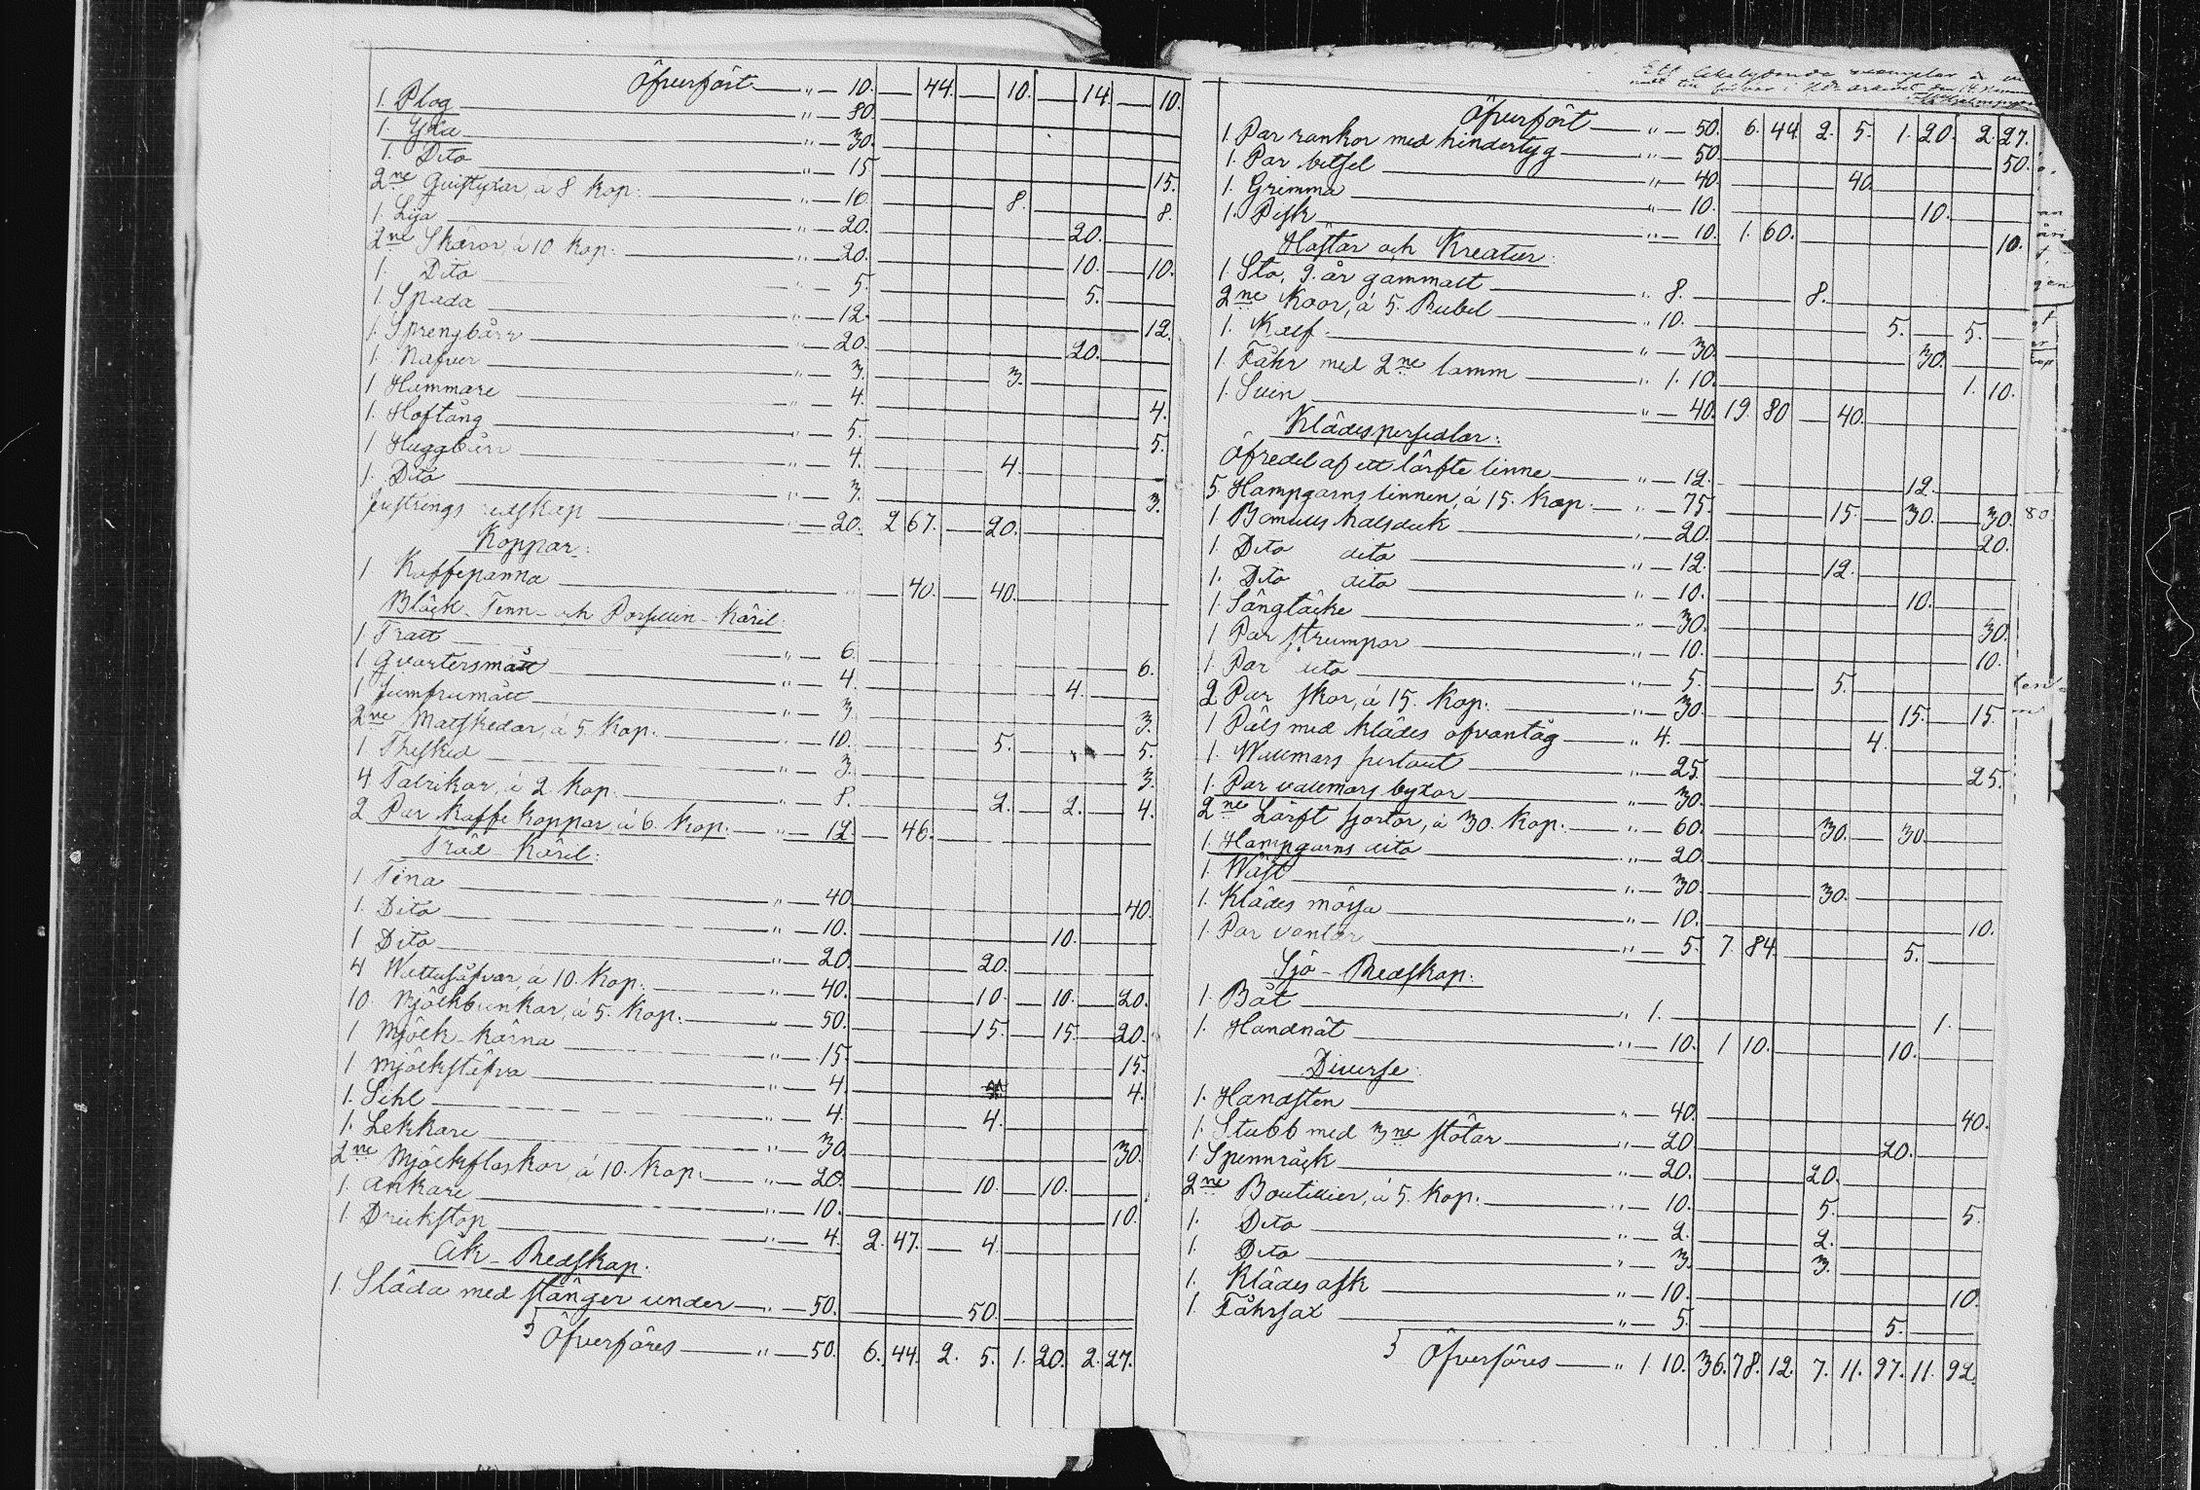 Öfverfört — " — 10. — 44. — 10. — 14. — 10.
1. Plog — " — 80.
1. Yxa — " — 30.
1. Dito — " — 15 — 15.
2ne Qvistyxor, á 8 Kop: — " — 16. — 8. — 8.
1. Lija — " — 20. — 20.
2ne Skäror, á 10 Kop: — " — 20. — 10. — 10.
1. Dito — " — 5. — 5.
1. Spada — " — 12. — 12.
1. Sprengbårr — " — 20. — 20.
1. Nafver — " — 3. — 3.
1 Hammare — " — 4. — 4.
1. Hoftång — " — 5. — 5.
1 Huggbårr — " — 4. — 4.
1. Dito — " — 3. — 3.
redskap — " — 20. 2 67. — 20.
Koppar:
1 Kaffepanna — " — 40. — 40.
Bläck- Tenn- och Porsillin- Käril:
1 Tratt — " — 6. — 6.
1 Qvartersmått — " — 4. — 4.
1 Jumfrumått — " — 3. — 3.
2ne Matskedar, á 5 Kop. — " — 10. — 5. — 5.
1 Thesked — " — 3. — 3.
4 Talrikar, á 2 Kop. — " — 8. — 2. — 2. — 4.
2 Par Kaffe Koppar, á 6. Kop. — " — 12 — 46.
Träd Käril:
1 Tina — " — 40 — 40.
1. Dito — " — 10. — 10.
1 Dito — " — 20. — 20.
4 á 10. Kop. — " — 40. — 10. — 10. — 20.
10 Mjölkbunkar, á 5. Kop. — " — 50. — 15. — 15. — 20.
1 Mjölk-Kärna — " — 15. — 15.
1 Mjölkstäfva — " — 4. — 4.
1. Sihl — " — 4. — 4.
1. Lekkare — " — 30. — 30.
2ne Mjölkflaskor, á 10. Kop: — " — 20. — 10. — 10.
1. Ankare — " — 10. — 10.
1. Drickstop — " — 4. 2. 47. — 4.
Åk-Redskap:
1. Släda med stänger under — " — 50. — 50.
Öfverföres — " — 50. 6. 44. 2. 5. 1. 20. 2. 27.
Ett
Öfverfört — " — 50. 6. 44. 2. 5. 1. 20. 2. 27.
1. Par rankor med hindertyg — " — 50. — 50.
1. Par betsel — " — 40. — 40.
1. Grimma — " — 10. — 10.
1. Pisk — " — 10. 1. 60. — 10.
Hästar och Kreatur:
1. Sto, 9. år gammalt — " 8. — 8.
2ne Koor, á 5. Rubel — " 10. — 5. — 5.
1. Kalf — " — 30. — 30.
1. Fåhr med 2ne lamm — " 1. 10. — 1. 10.
1. Svin — " — 40. 19. 80 — 40.
Klädespersedlar:
Öfredel af ett lärfts linne — " — 12. — 12.
5. Hampgarns linnen, á 15. Kop. — " — 75. — 15. — 30. — 30.
1. Bomulls halsduk — " — 20. — 20.
1. Dito dito — " — 12. — 12.
1. Dito dito — " — 10. — 10.
1. Sängtäcke — " — 30. — 30.
1 Par strumpor — " — 10. — 10.
1. Par dito — " — 5. — 5.
2 Par skor, á 15. Kop. — " — 30. — 15. — 15.
1 Päls med klädes ofvantåg — " 4. — 4.
1. Wallmars surtout — " — 25. — 25.
1. Par vallmars byxor — " — 30.
2ne Lärft skjortor, á 30. Kop. — " — 60. — 30. — 30.
1. Hampgarns dito — " — 20.
1. Wäst — " — 30. — 30.
1. Klädes mössa — " — 10. — 10.
1. Par vantar — " — 5. 7. 84. — 5.
Sjö-Redskap:
1. Båt — " 1. — 1.
1. Handnät — " — 10. 1 10. — 10.
Diverse:
1. Handsten — " — 40. — 40.
1. Stubb med 3ne stötar — " — 20 — 20.
1 Spinnräck — " — 20. — 20.
2ne Boutillier, á 5. Kop. — " — 10. — 5. — 5.
1. Dito — " — 2. — 2.
1. Dito — " — 3. — 3.
1. Klädes ask — " — 10. — 10.
1. Fåhrsax — " — 5. — 5.
Öfverföres — " 1 10. 36. 78. 12. 7. 11. 97. 11. 92.